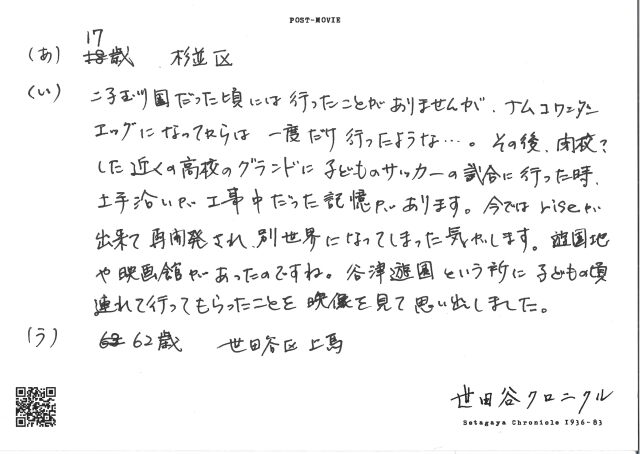 POST-MOVIE
(あ) 17歳 杉並区
(い) 二子玉川園だった頃には行ったことがありませんが、ナムコワンダー
エッグになってからは一度だけ行ったような…。その後、閉校?
した近くの高校のグランドに子どものサッカーの試合に行った時、
土手沿いが工事中だった記憶があります。今ではriseが
出来て再開発され、別世界になってしまった気がします。遊園地
や映画館があったのですね。谷津遊園という所に子どもの頃
連れて行ってもらったことを映像を見て思い出しました。
(う) 62歳 世田谷区上馬
世田谷クロニクル
Setagaya Chronicle 1936-83